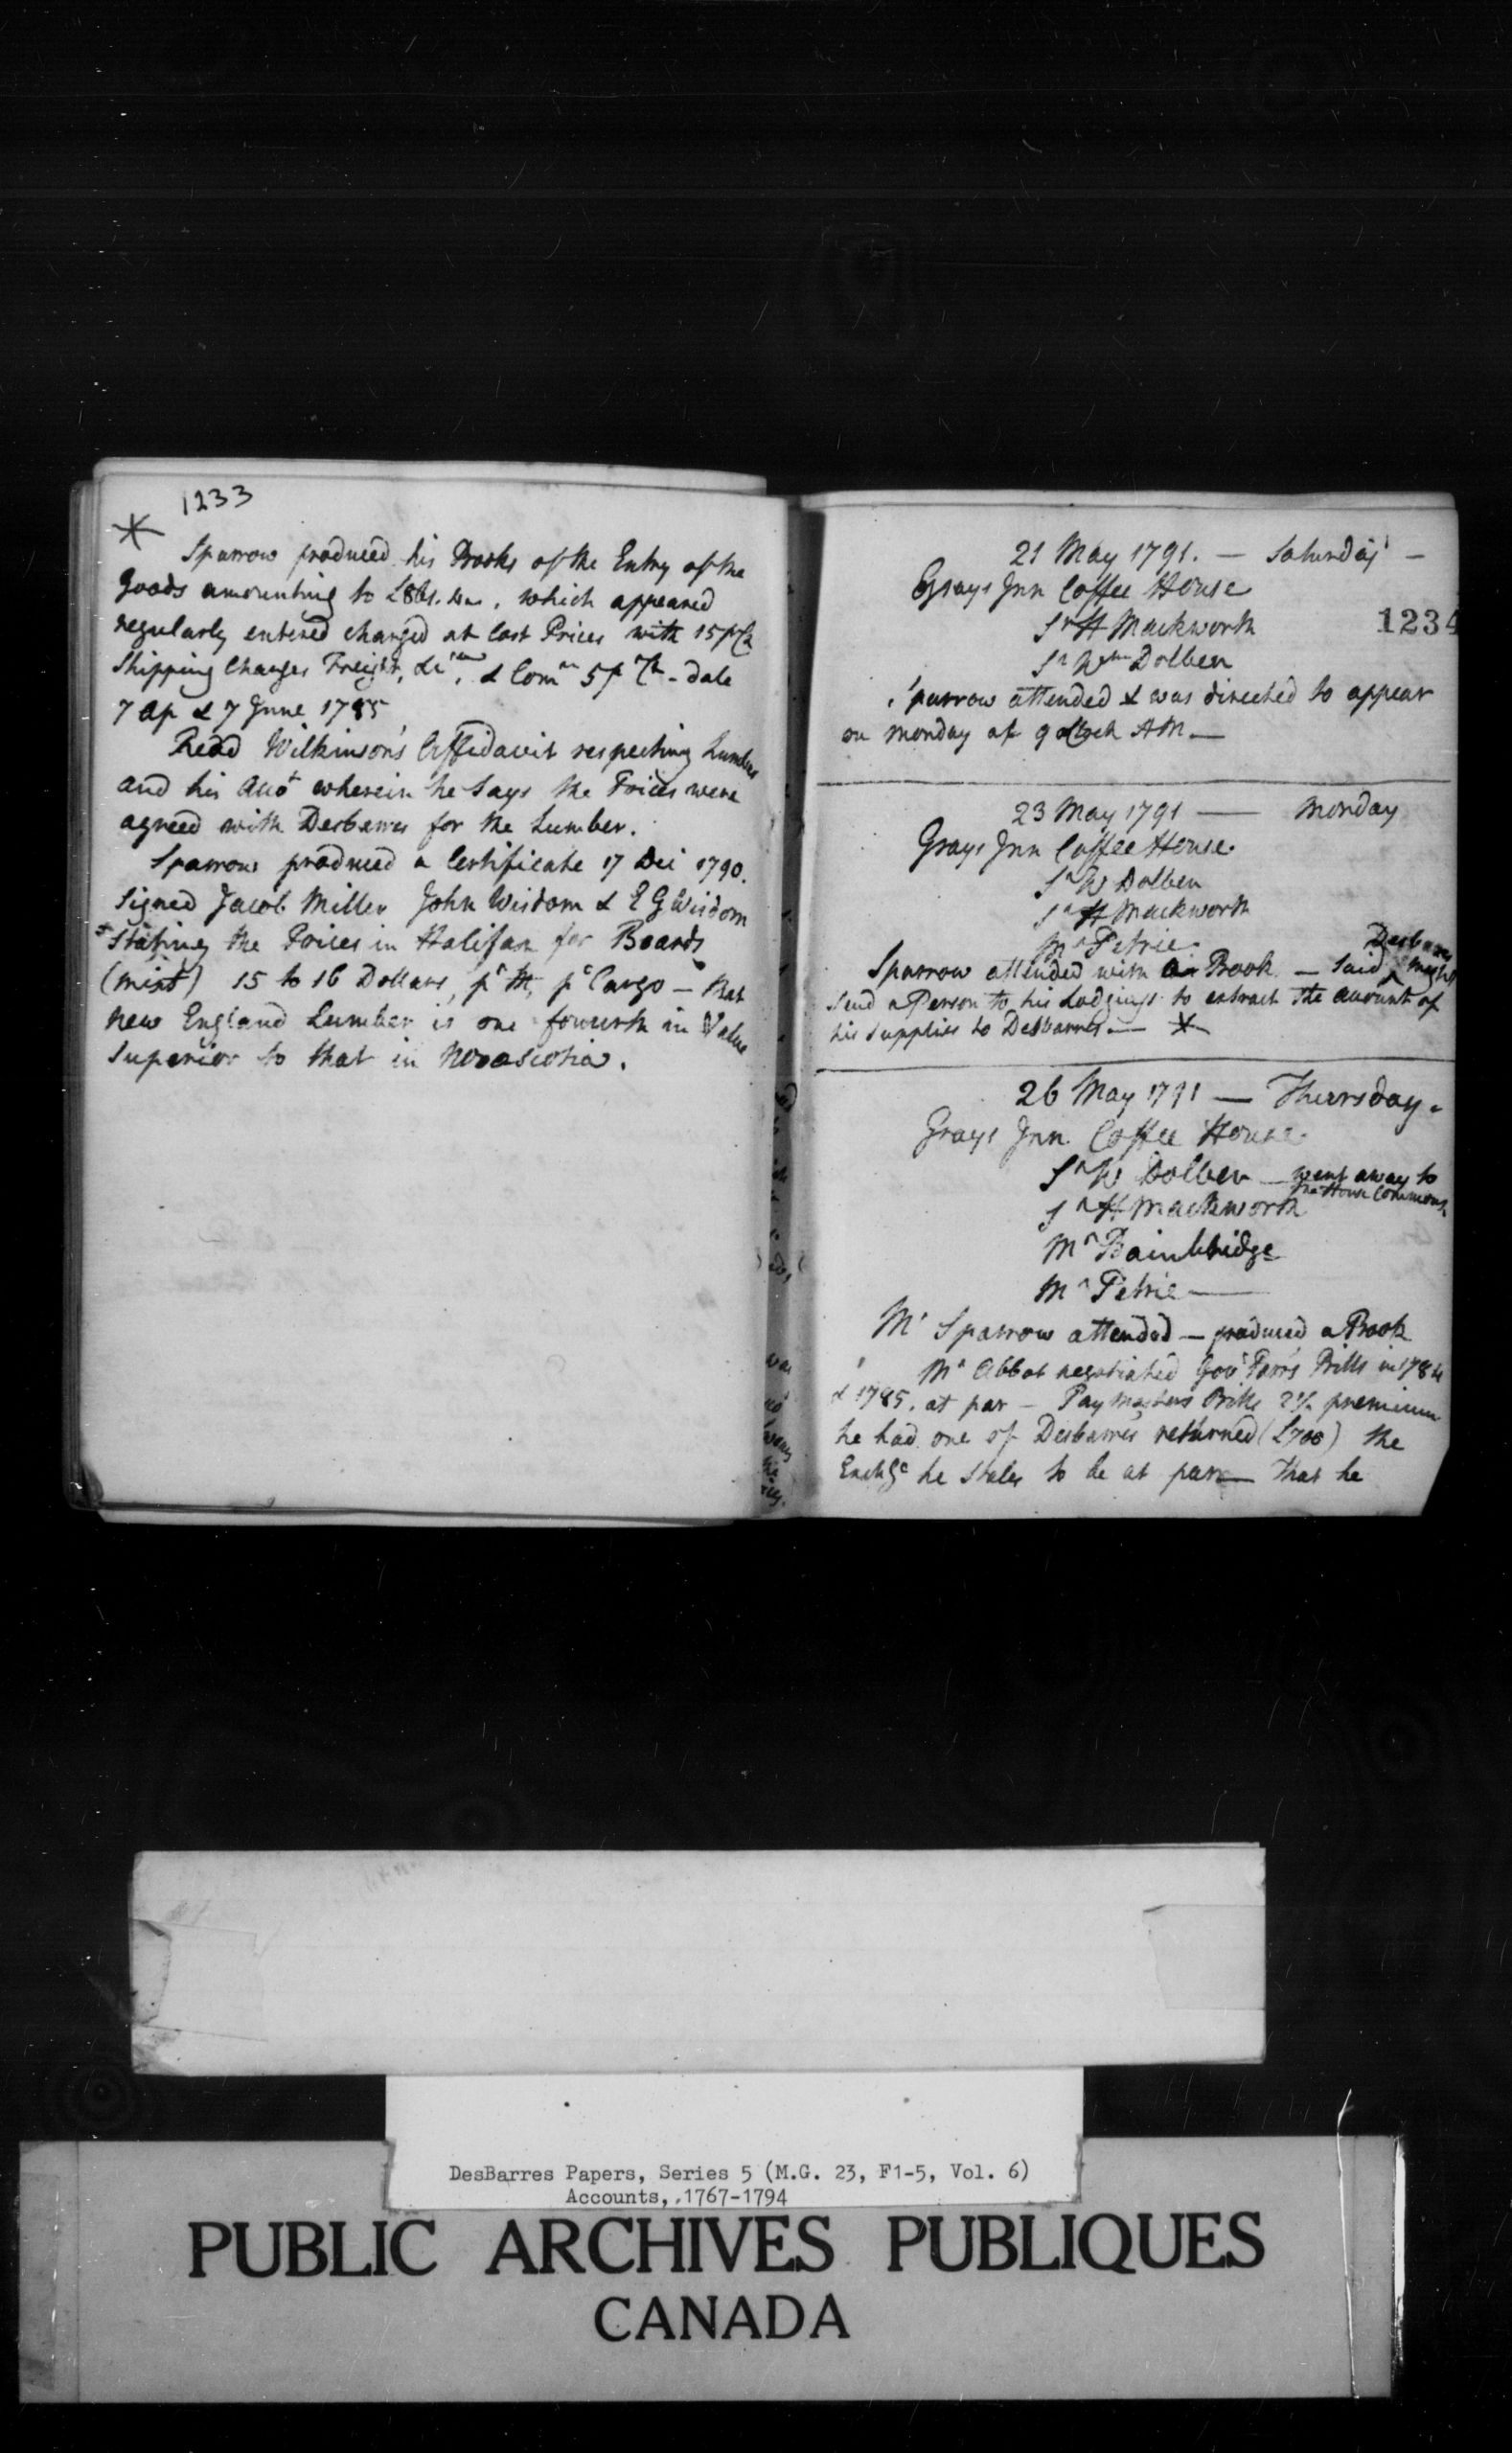 1233
*
Sparrow produced his Books of the Entry of the
Goods amounting to which appeared
regularly entered charged at Cost Prices with 15 p Ct
Shipping Charges Freight, & Comn 5 p Ct - date
7 Ap & 7 June 1785
Read Wilkinson's Affidavit respecting Lumber
and his Acct wherein he says the Prices were
agreed with Desbarres for the Lumber.
Sparrow produced a Certificate 17 Dec 1790.
Signed Jacob Miller John Wisdom & E G Wisdom
Stating the Prices in Halifax for Boards
(mixt) 15 to 16 Dollars, pr M, pr Cargo - that
New England Lumber is one fourth in Value
superior to that in Novascotia.
21 May 1791. — Saturday —
Grays Inn Coffee House
1234
Sr H Mackworth
Sr Wm Dolben
Sparrow attended & was directed to appear
on Monday at 9 oClock AM —
23 May 1791 — Monday
Grays Inn Coffee House.
Sr W Dolben
Sr H Mackworth
Mr Petrie.
Sparrow attended with Book — said Desbarres might
send a Person to his Lodgings to extract the amount of
his supplies to Desbarres — *
26 May 1791 — Thursday.
Grays Inn Coffee House.
Sr W Dolben — went away to
the House Commons
Sr H Mackworth
Mr Bainbridge
Mr Petrie —
Mr Sparrow attended — produced a Book
Mr Abbot negotiated Govr Parrs Bills in 1784
& 1785. at par — Paymasters Bills 2 % premium
he had one of Desbarres returned (£700) the
Exchge he states to be at par — that he
DesBarres Papers, Series 5 (M.G. 23, F1-5, Vol. 6)
Accounts, 1767-1794
PUBLIC ARCHIVES PUBLIQUES
CANADA